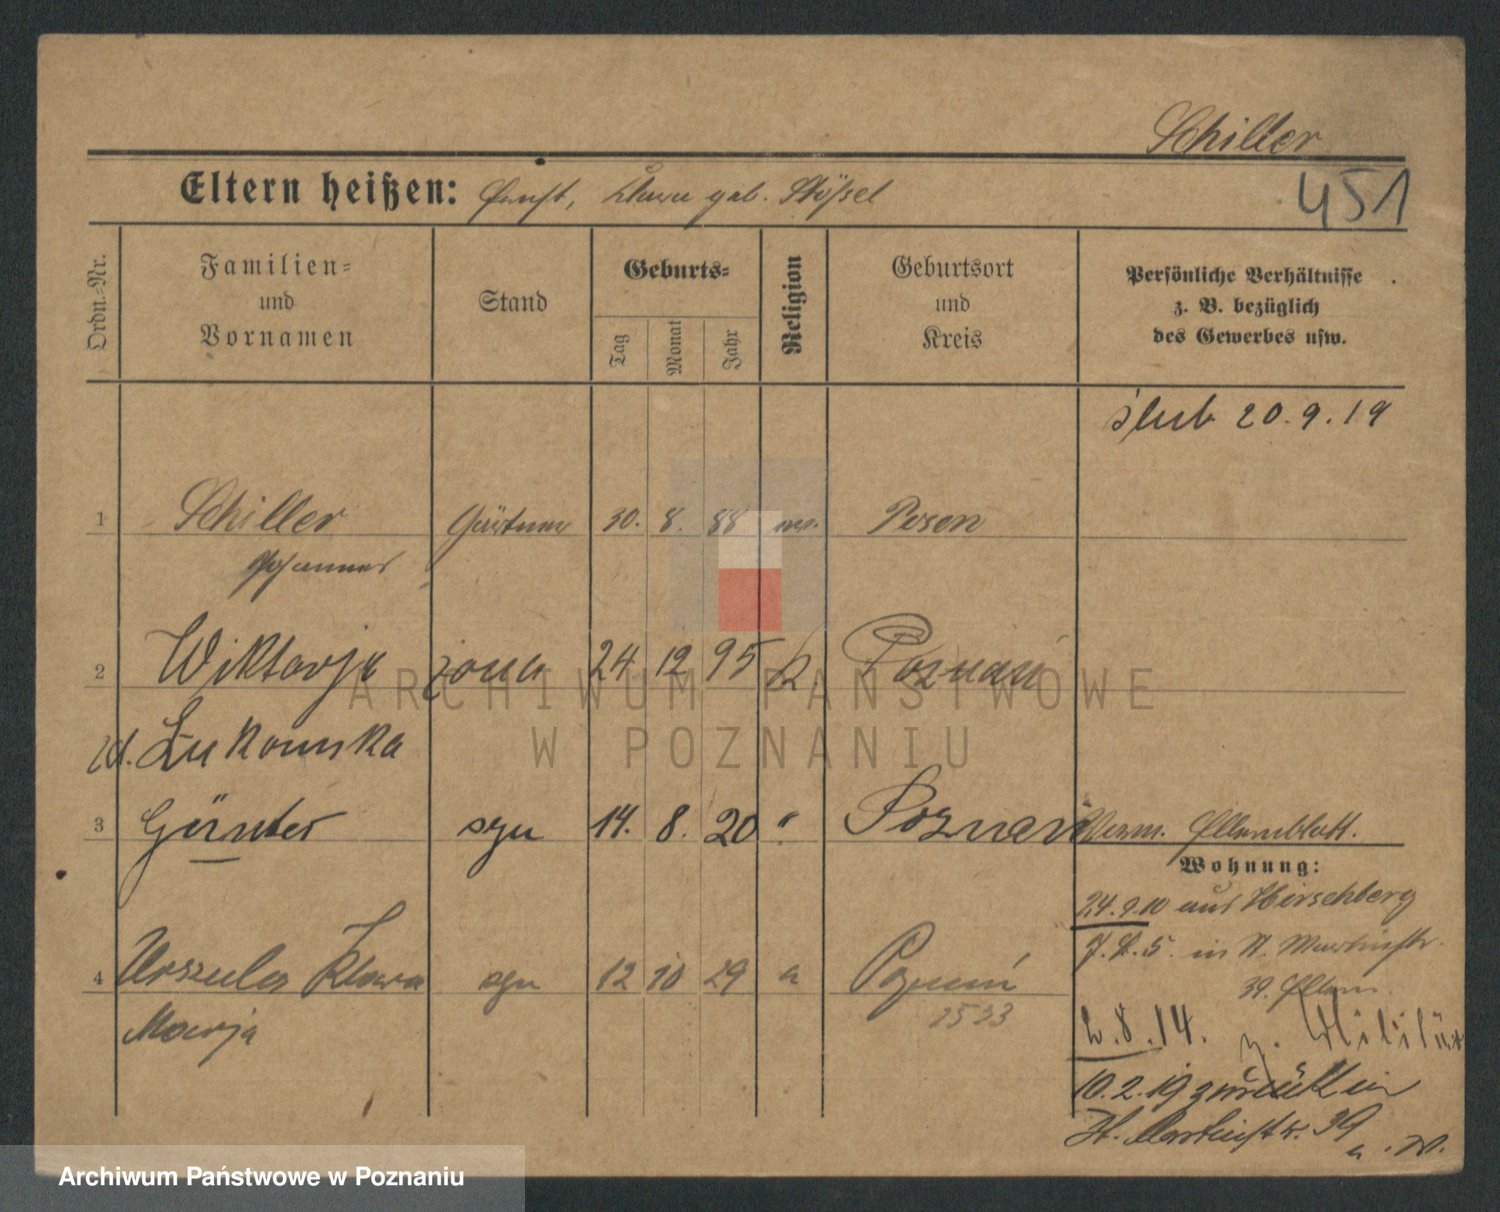 Schiller
Eltern heißen: Ernst, Klara geb. Stößel
451
Ordn.-Nr.
Familien- und Vornamen
Stand
Geburts-
Tag Monat Jahr
Religion
Geburtsort und Kreis
Persönliche Verhältnisse z. B. bezüglich des Gewerbes usw.
ślub 20.9.19
1 Schiller Gärtner 30. 8. 88 Posen
Johannes
2 Wiktorja żona 24 12 95 Poznań
zd. Łukowska
3 Günter syn 14. 8. 20 " Poznań Verm. Elternblatt.
Wohnung:
24.9.10 aus Hirschberg
in St. Martinstr.
39. Eltern
4 Urszula Klara 12 10 29 Poznań
1533
Marja
2.8.14. z. Militär
10.2.19 zurück in
St. Martinstr. 39
ARCHIWUM PAŃSTWOWE
W POZNANIU
Archiwum Państwowe w Poznaniu